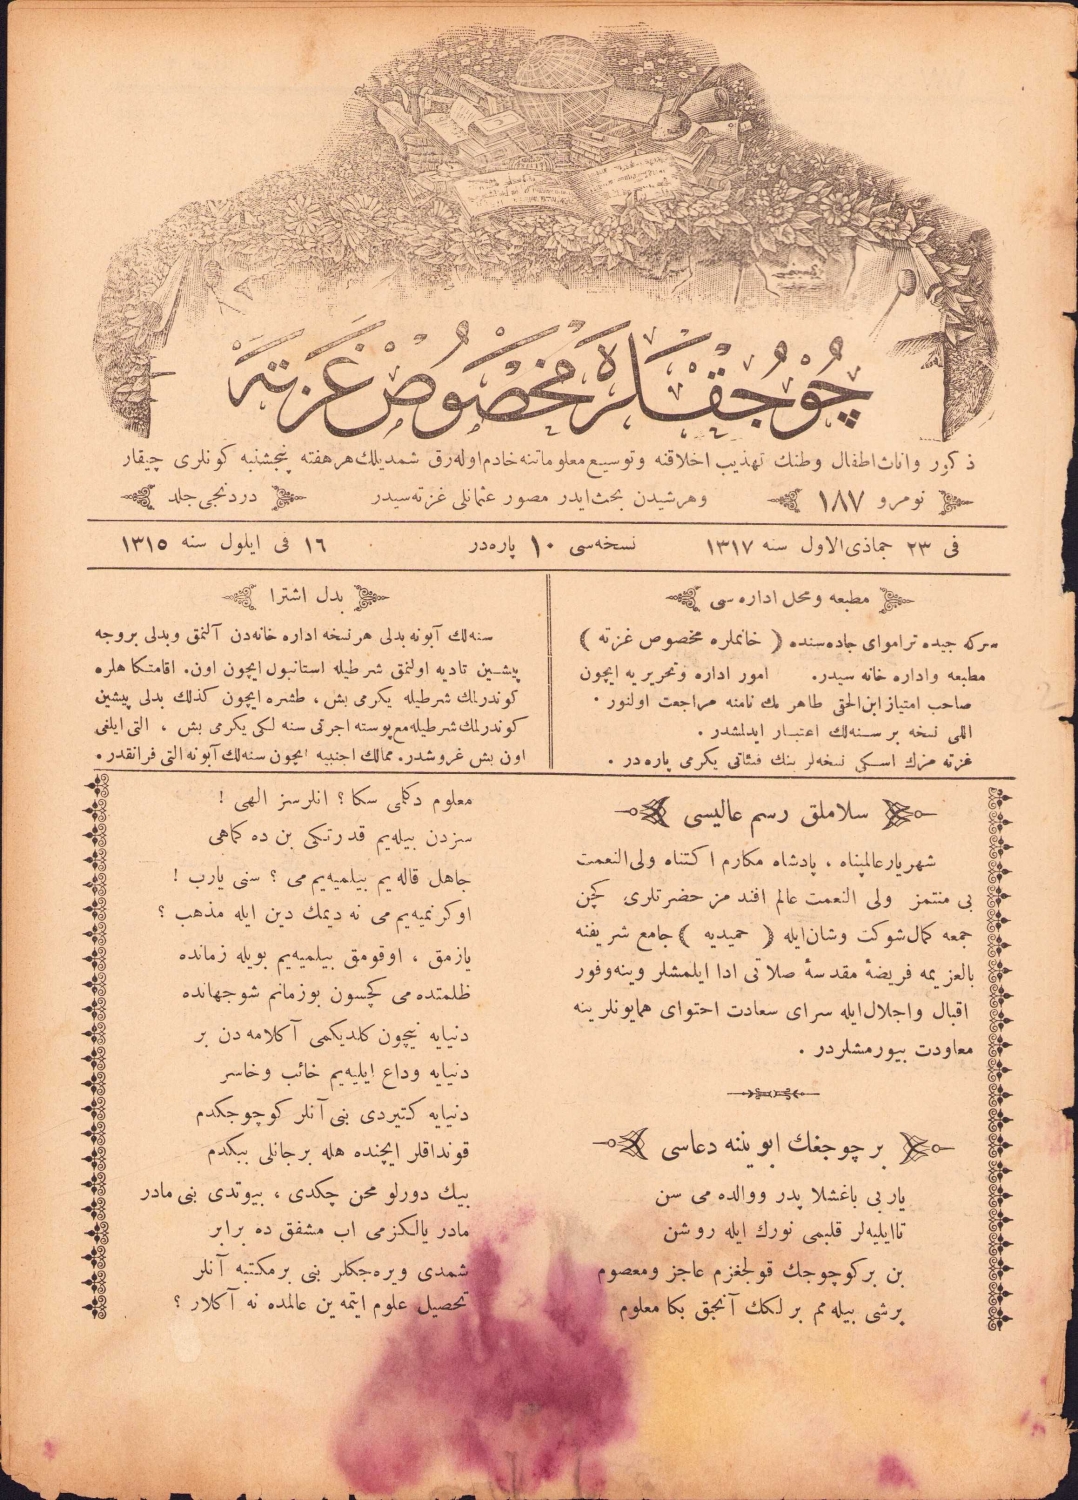 چوجقلره مخصوص غزته
ذكور و اناث اطفال وطنك تهذيب اخلاقنه و توسيع معلوماتنه خادم اوله‌رق شمديلك هر هفته پنجشنبه كونلرى چيقار
نومرو ١٨٧
و هر شيدن بحث ايدر مصور عثمانلى غزته‌سيدر
دردنجى جلد
فى ٢٣ جماذى الاول سنه ١٣١٧
نسخه‌سى ١٠ پاره‌در
١٦ فى ايلول سنه ١٣١٥
مطبعه و محل اداره سى
سركه جيده تراموای جاده‌سنده ( خانملره مخصوص غزته )
مطبعه و اداره خانه سيدر. امور اداره و تحريريه ايچون
صاحب امتياز ابن الحقى طاهر بك نامنه مراجعت اولنور ·
اللى نسخه بر سنه‌لك اعتبار ايدلمشدر ·
غزته مزك اسكى نسخه‌لرينك فيئاتى يكرمى پاره در ·
بدل اشترا
سنه‌لك آبونه بدلى هر نسخه اداره خانه‌دن آلنمق و بدلى بروجه
پيشين تاديه اولنمق شرطيله استانبول ايچون اون. اقامتكاهلره
كوندرلمك شرطيله يكرمى بش ، طشره ايچون كذلك بدلى پيشين
كوندرلمك شرطيله مع پوسته اجرتى سنه لكى يكرمى بش ، التى ايلغى
اون بش غروشدر. ممالك اجنبيه ايچون سنه‌لك آبونه التى فرانقدر ·
سلاملق رسم عاليسى
شهريار عالمپناه ، پادشاه مكارم اكتناه ولى النعمت
بى منتمز ولى النعمت عالم افندمز حضرتلرى كچن
جمعه كمال شوكت و شان ايله ( حميديه ) جامع شريفنه
بالعزيمه فريضهٔ مقدسهٔ صلاتى ادا ايلمشلر و ينه وفور
اقبال و اجلال ايله سراى سعادت احتواى همايونلرينه
معاودت بيورمشلردر ·
بر چوجغك ابويننه دعاسى
يار بى باغشلا پدر و والده مى سن
تا ايليه‌لر قلبمى نورك ايله روشن
بن بر كوچوجك قولجغزم عاجز و معصوم
برشى بيله مم بر لكك آنجق بكا معلوم
معلوم دكلمى سكا ؟ انلرسز الهى !
سزدن بيله‌يم قدرتكى بن ده كماهى
جاهل قاله‌يم بيلميه‌يم مى ؟ سنى يارب !
اوكرنميه‌يم مى نه ديمك دين ايله مذهب ؟
يازمق ، اوقومق بيلميه‌يم بويله زمانده
ظلمتده مى كچسون بو زمانم شو جهانده
دنيايه نيچون كلديكمى آكلامه دن بر
دنيايه وداع ايليه‌يم خائب و خاسر
دنيايه كتيردى بنى آنلر كوچوجكدم
قونداقلر ايچنده هله بر جانلى ببكدم
بيك دورلو محن چكدى ، بيوتدى بنى مادر
مادر يالكزمى اب مشفق ده برابر
شمدى ويره‌جكلر بنى بر مكتبه آنلر
تحصيل علوم ايتمه ين عالمده نه آكلار ؟